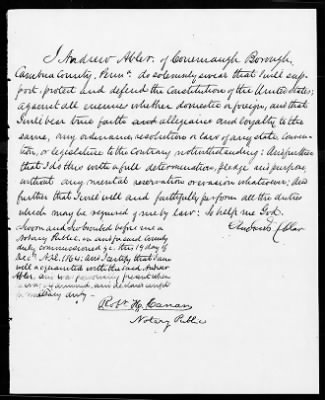 I Andrew Abler. of Conemaugh Borough,
Cambria County, Penna. do solemnly swear that I will sup-
port, protect and defend the Constitution of the United States,
against all enemies whether domestic or foreign, and that
I will bear true faith and allegiance and loyalty to the
same, any ordinance, resolution or law of any state, conven-
tion, or legislature to the contrary notwithstanding: And further
that I do this with a full determination, pledge and purpose
without any mental reservation or evasion whatsoever; And
further that I will well and faithfully perform all the duties
which may be required of me by law: So help me God.
Sworn and subscribed before me a
Notary Public, in and for said County
duly commissioned &c. this 19 day of
Decr. A.D. 1864. And I certify that I am
well acquainted with the said Andrew
Abler,
military duty.
Andrew Abler
Robt. H. Canan
Notary Public